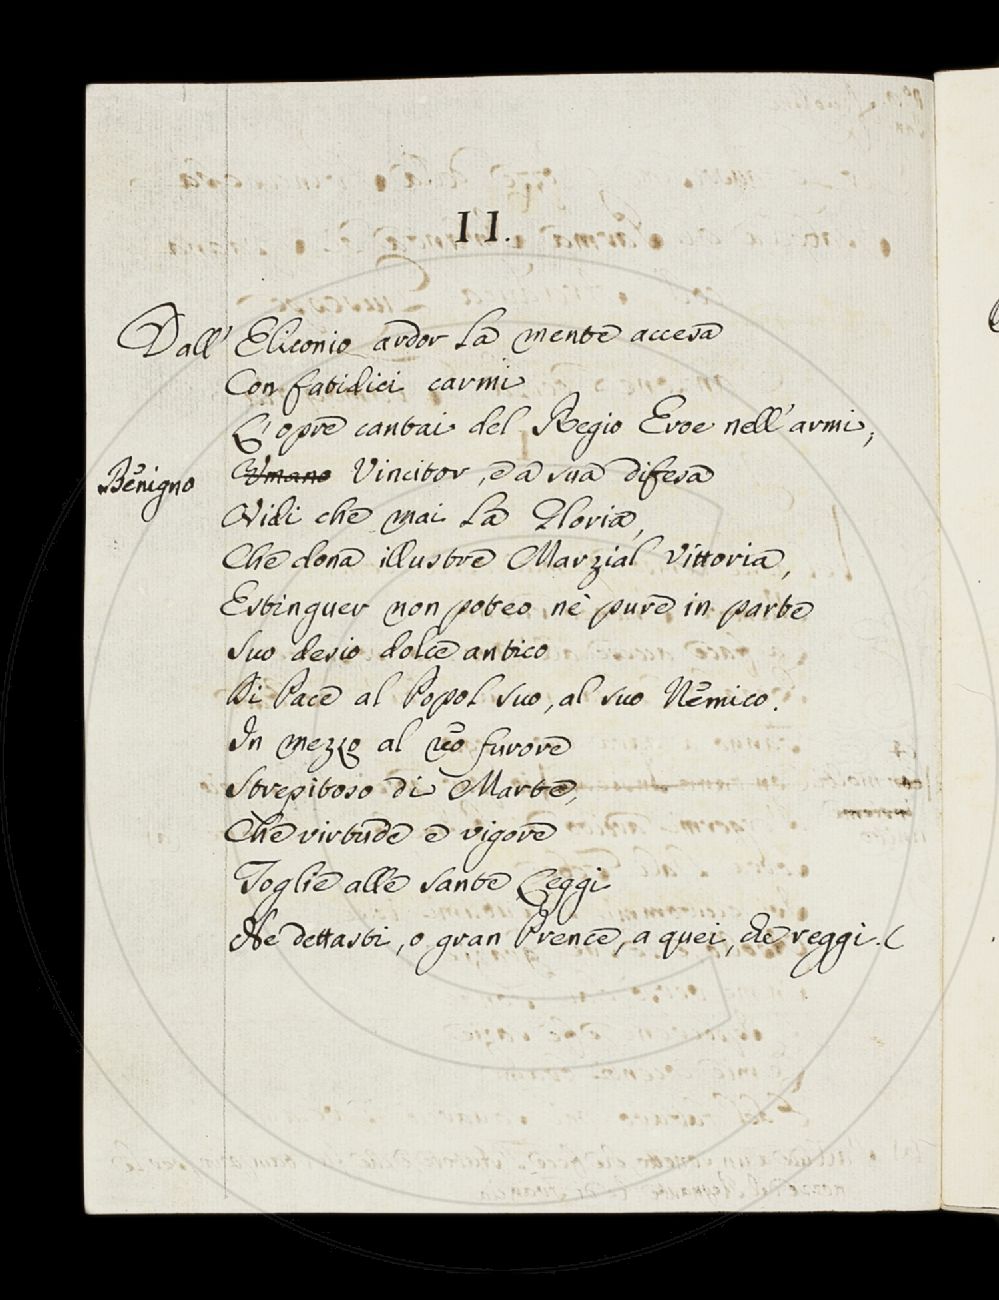 II.
Dall' Eliconio ardor la mente accesa
Con fatidici carmi
L'opre cantai del Regio Eroe nell'armi;
Benigno Umano Vincitor, e a sua difesa
Vidi che mai la Gloria,
Che dona illustre Marzial Vittoria,
Estinguer non poteo nè pure in parte
Suo desio dolce antico
Di Pace al Popol suo, al suo Nemico.
In mezzo al reo furore
Strepitoso di Marte,
Che virtude e vigore
Toglie alle sante Leggi
Che dettasti, o gran Prence, a quei, che reggi.